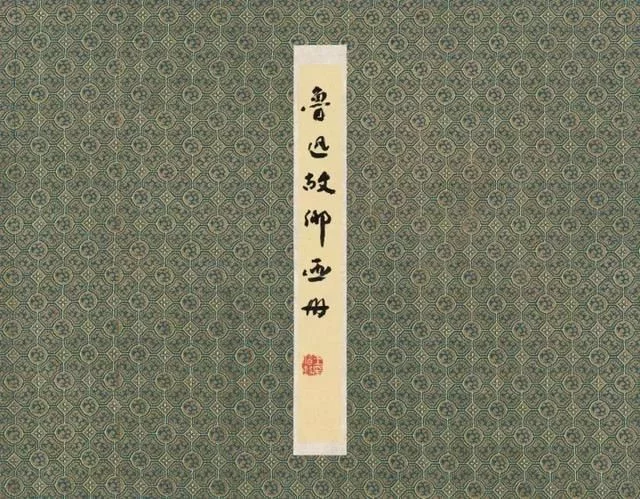 鲁迅故鄉画册